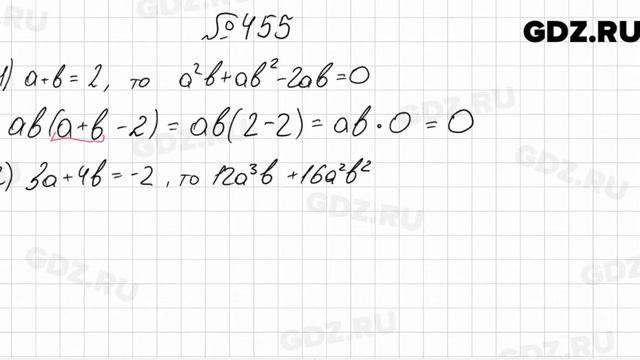 №455
GDZ.RU
1) a+b=2, то a²b+ab²-2ab=0
ab(a+b-2)=ab(2-2)=ab·0=0
2) 3a+4b=-2, то 12a³b+16a²b²
GDZ.RU
GDZ.RU
GDZ.RU
GDZ.RU
GDZ.RU
GDZ.RU